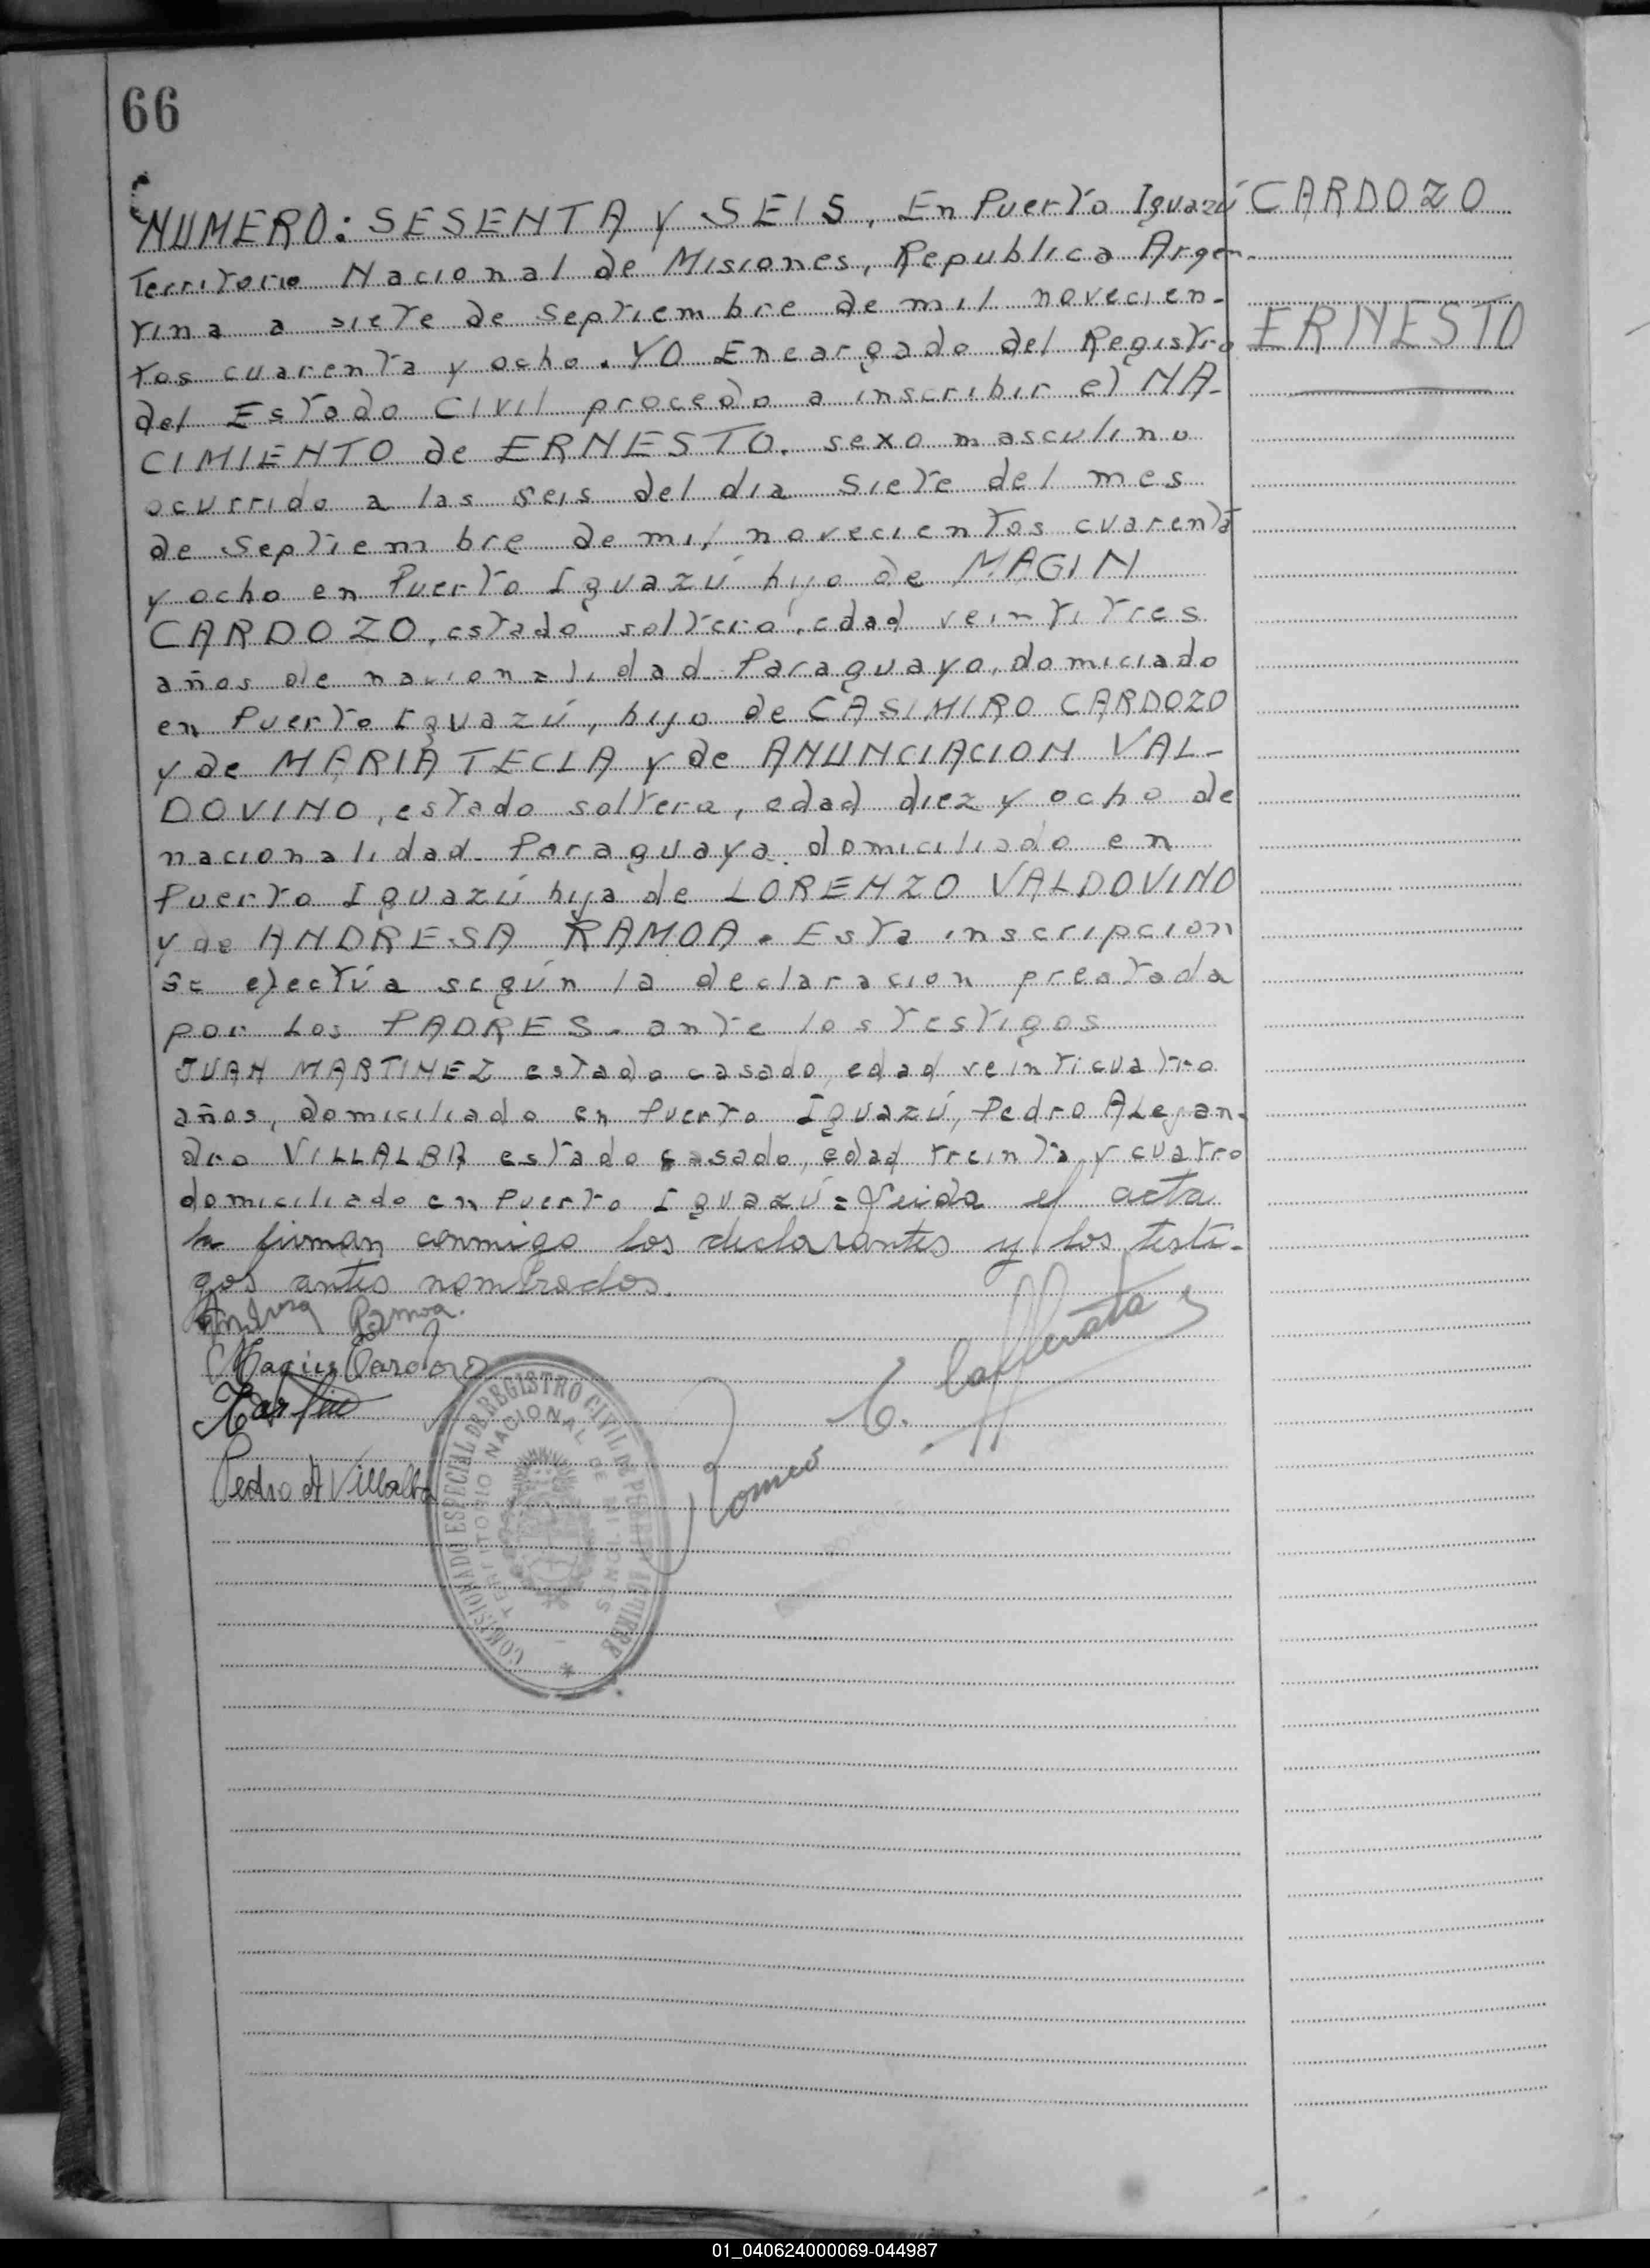 66
NUMERO: SESENTA Y SEIS, En Puerto Iguazú
CARDOZO
Territorio Nacional de Misiones, Republica Argen-
tina a siete de Septiembre de mil novecien-
ERNESTO
tos cuarenta y ocho. YO Encargado del Registro
del Estado Civil procedo a inscribir el NA-
CIMIENTO de ERNESTO. sexo masculino
ocurrido a las seis del dia siete del mes
de Septiembre de mil novecientos cuarenta
y ocho en Puerto Iguazú hijo de MAGIN
CARDOZO, estado soltero, edad veintitres
años de nacionalidad Paraguayo, domiciado
en Puerto Iguazú, hijo de CASIMIRO CARDOZO
y de MARIA TECLA y de ANUNCIACION VAL-
DOVINO, estado soltera, edad diez y ocho de
nacionalidad Paraguaya domiciliado en
Puerto Iguazú hija de LORENZO VALDOVINO
y de ANDRESA RAMOA. Esta inscripcion
se efectúa según la declaracion prestada
por Los PADRES. ante los testigos
JUAN MARTINEZ estado casado, edad veinticuatro
años, domiciliado en Puerto Iguazú, Pedro ALejan-
dro VILLALBA estado casado, edad treinta y cuatro
domiciliado en Puerto Iguazú = Leida el acta
la firman conmigo los declarantes y los testi-
gos antes nombrados.
Andresa Ramoa.
Magin Cardozo
Pedro A Villalba
Romeo C. Cafferata
COMISIONADO ESPECIAL DE REGISTRO CIVIL DE PUERTO AGUIRRE
TERRITORIO NACIONAL DE MISIONES
01_040624000069-044987